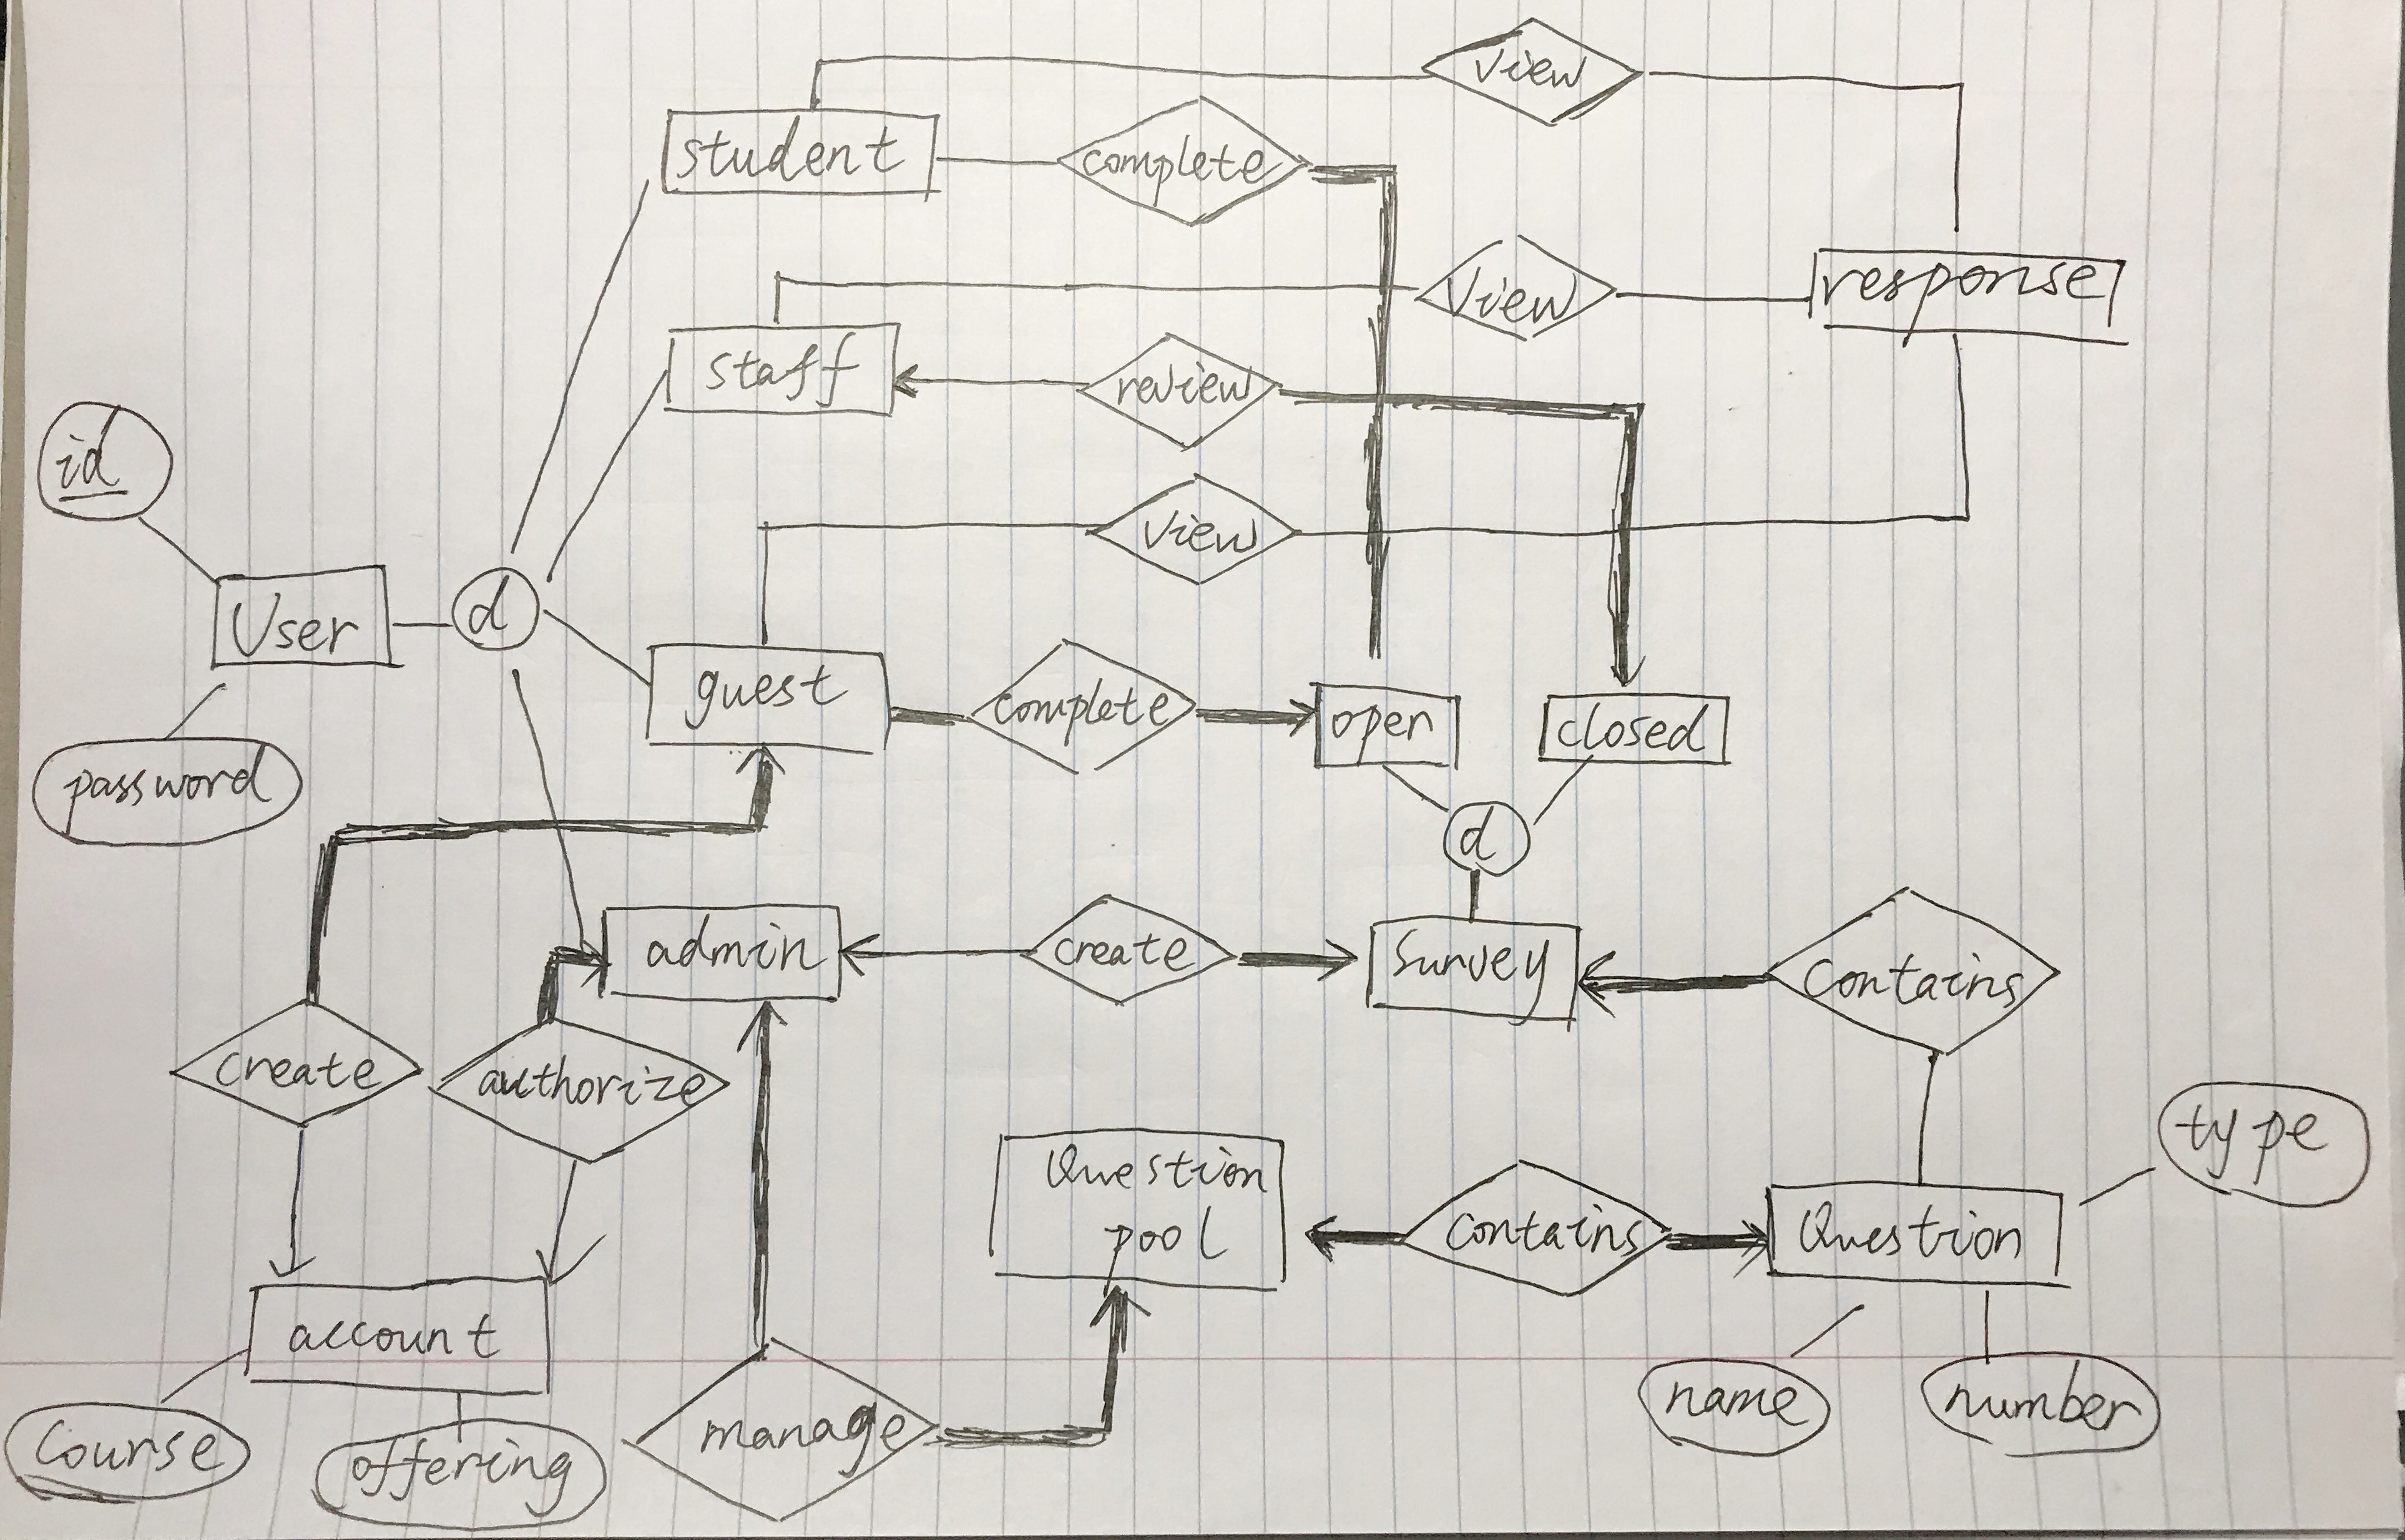 view
student
complete
view
response
staff
review
id
view
User
d
guest
complete
open
closed
password
d
admin
create
survey
contains
create
authorize
type
Question
pool
contains
Question
account
name
number
manage
course
offering